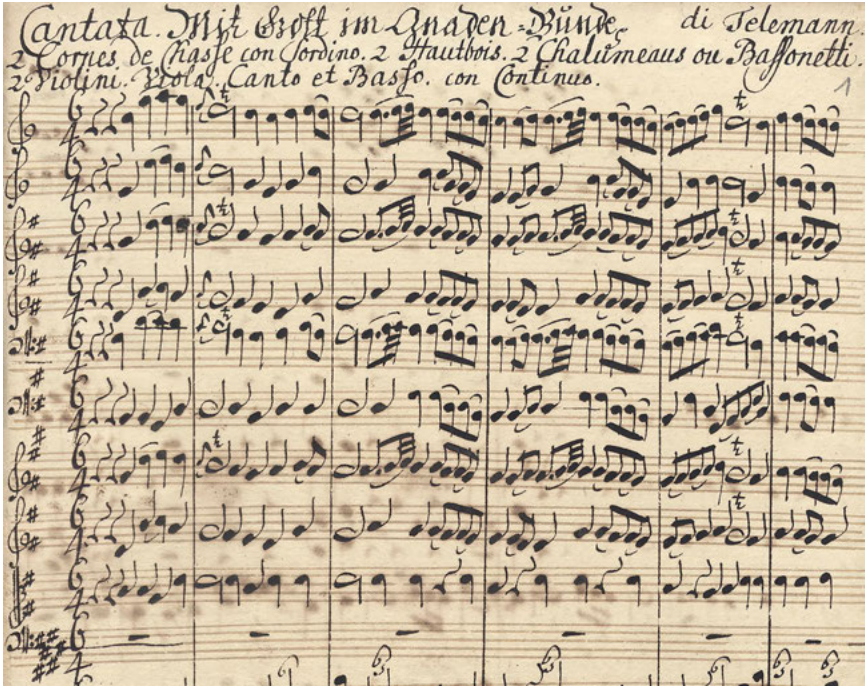 Cantata. Mit Gott im Gnaden-Bunde, di Telemann.
2 Cornes de Chasse con Sordino. 2 Hautbois. 2 Chalümeaus ou Bassonetti.
2 Violini. Viola. Canto et Basso. con Continuo.
1